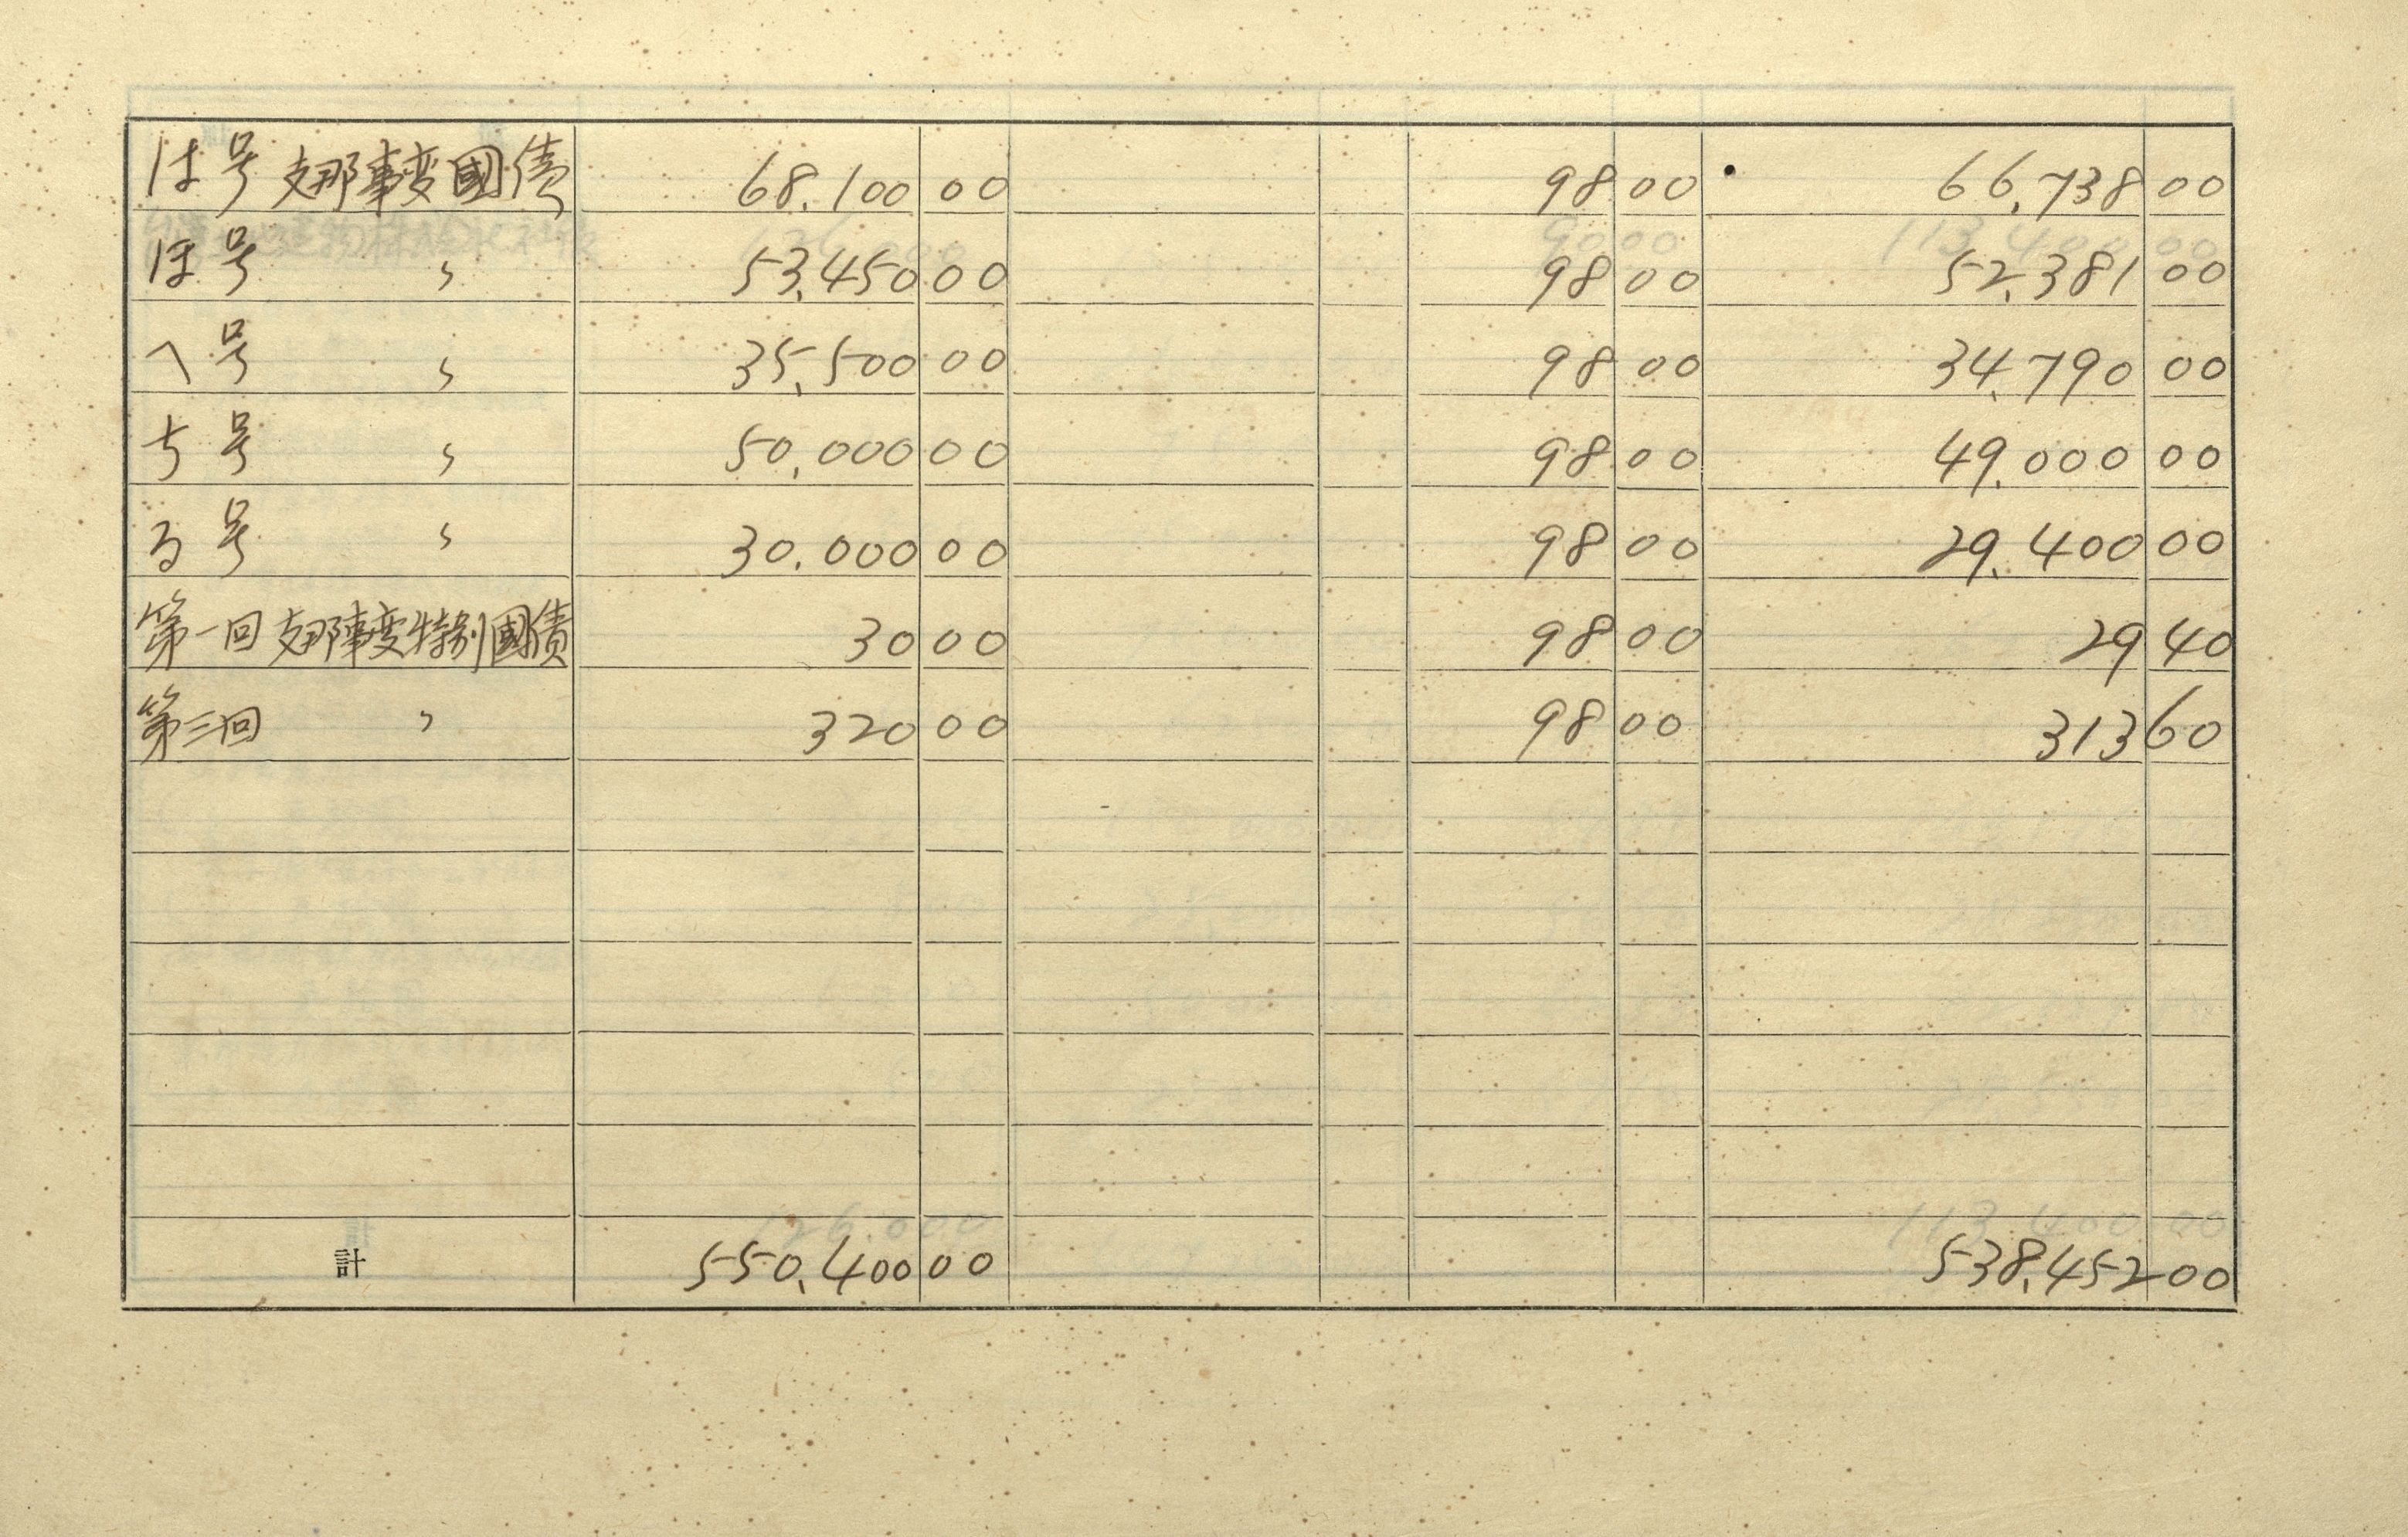 は号 支那事変國債 68,100 00 98 00 66,738 00
ほ号 〃 53,450 00 98 00 52,381 00
へ号 〃 35,500 00 98 00 34,790 00
ち号 〃 50,000 00 98 00 49,000 00
る号 〃 30,000 00 98 00 29,400 00
第一回 支那事変特別國債 30 00 98 00 29 40
第三回 〃 320 00 98 00 313 60
計 550,400 00 538,452 00